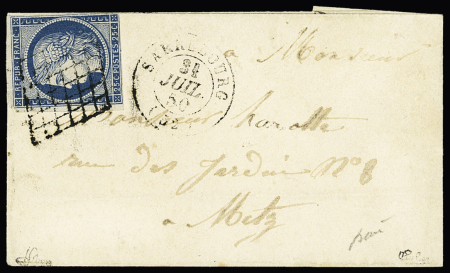 REPUB.FRANC.
25c POSTES 25c
SARREBOURG
31
JUIL.
50
(52)
a Monsieur
Monsieur
rue des Jardin N° 8
a Metz